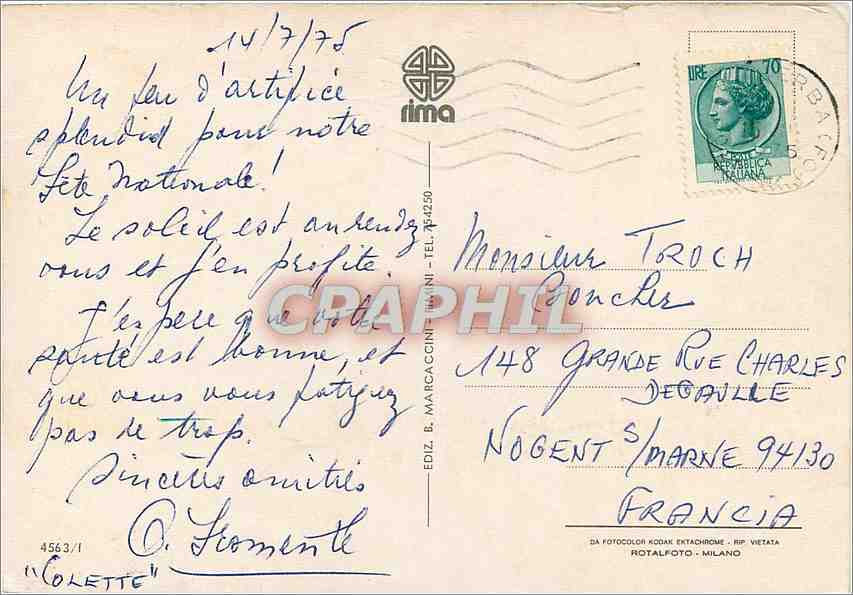 14/7/75
Un feu d'artifice
splendid pour notre
Fête Nationale!
Le soleil est au rendez-
vous et j'en profite.
J'espere que votre
santé est bonne, et
que vous vous fatiguez
pas de trop.
Sincères amitiés
"COLETTE"
4563/I
rima
EDIZ. B. MARCACCINI - RIMINI - TEL. 754250
CPAPHIL
LIRE 70
POSTE
REPVBBLICA
ITALIANA
Monsieur TROCH
Boucher
148 GRANDE RUE CHARLES
DEGAULLE
NOGENT S/MARNE 94130
FRANCIA
DA FOTOCOLOR KODAK EKTACHROME - RIP. VIETATA
ROTALFOTO - MILANO